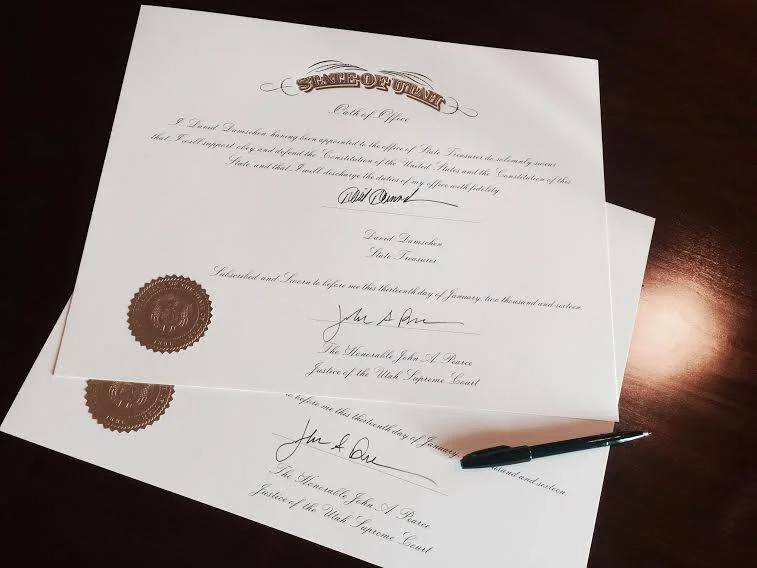 STATE OF UTAH
Oath of Office
I, David Damschen having been appointed to the office of State Treasurer do solemnly swear
that I will support, obey and defend the Constitution of the United States and the Constitution of this
State, and that I will discharge the duties of my office with fidelity.
David Damschen
State Treasurer
Subscribed and Sworn to before me this thirteenth day of January, two thousand and sixteen
The Honorable John A. Pearce
Justice of the Utah Supreme Court
to before me this thirteenth day of January, thousand and sixteen
The Honorable John A. Pearce
Justice of the Utah Supreme Court